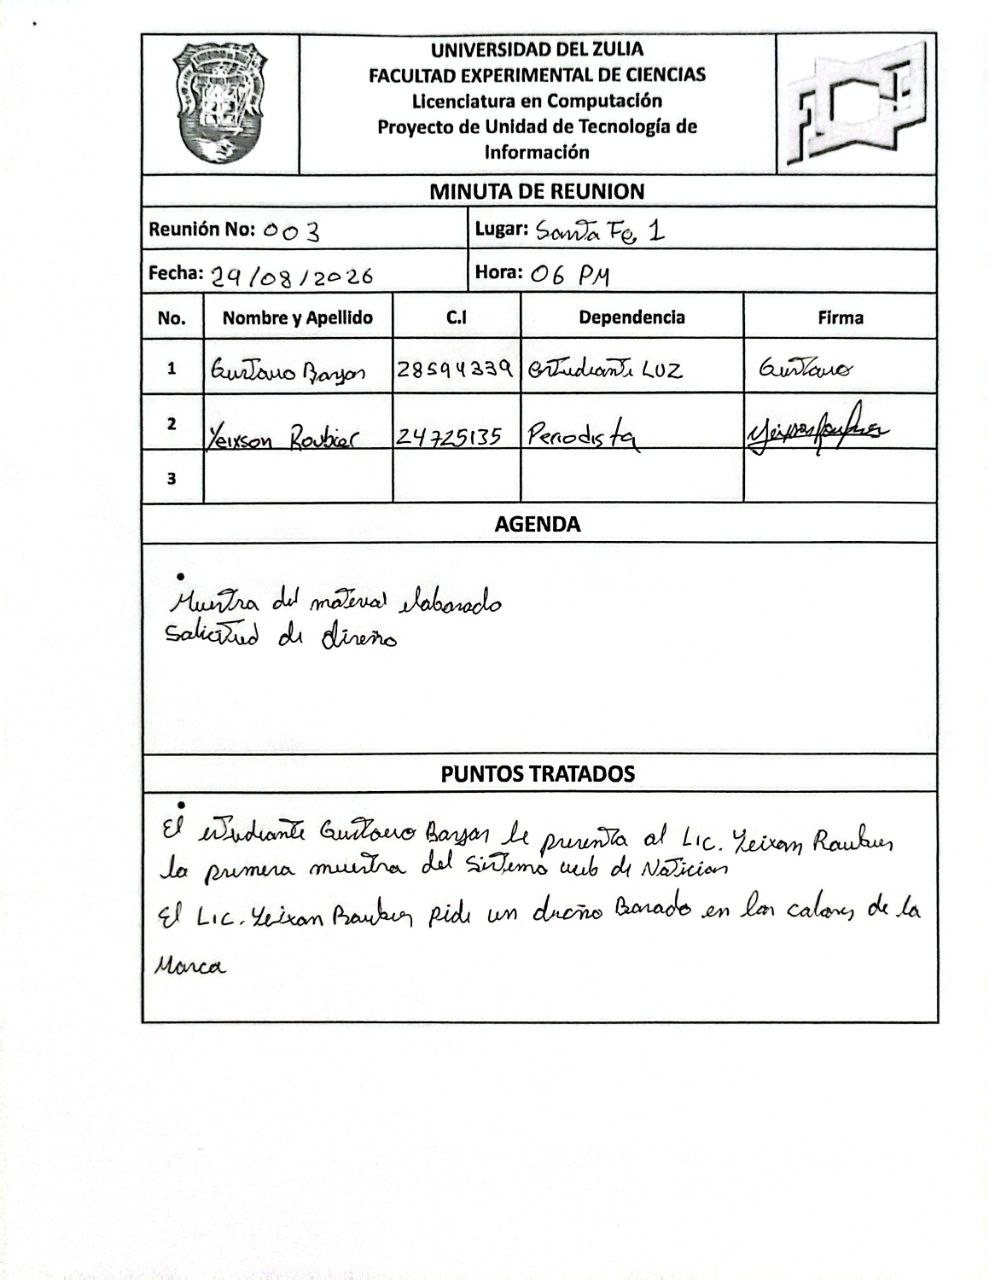 UNIVERSIDAD DEL ZULIA
FACULTAD EXPERIMENTAL DE CIENCIAS
Licenciatura en Computación
Proyecto de Unidad de Tecnología de
Información
MINUTA DE REUNION
Reunión No: 003
Lugar: Santa Fe 1
Fecha: 29/08/2026
Hora: 06 PM
No. Nombre y Apellido C.I Dependencia Firma
1 Gustavo Barjas 28594339 estudiante LUZ Gustavo
2 Yeixson Roubier 24725135 Periodista
3
AGENDA
Muestra del material elaborado
Solicitud de diseño
PUNTOS TRATADOS
El estudiante Gustavo le presenta al Lic.
la primera muestra del Sistema web de Noticias
El Lic. pide un diseño Basado en los colores de la
Marca